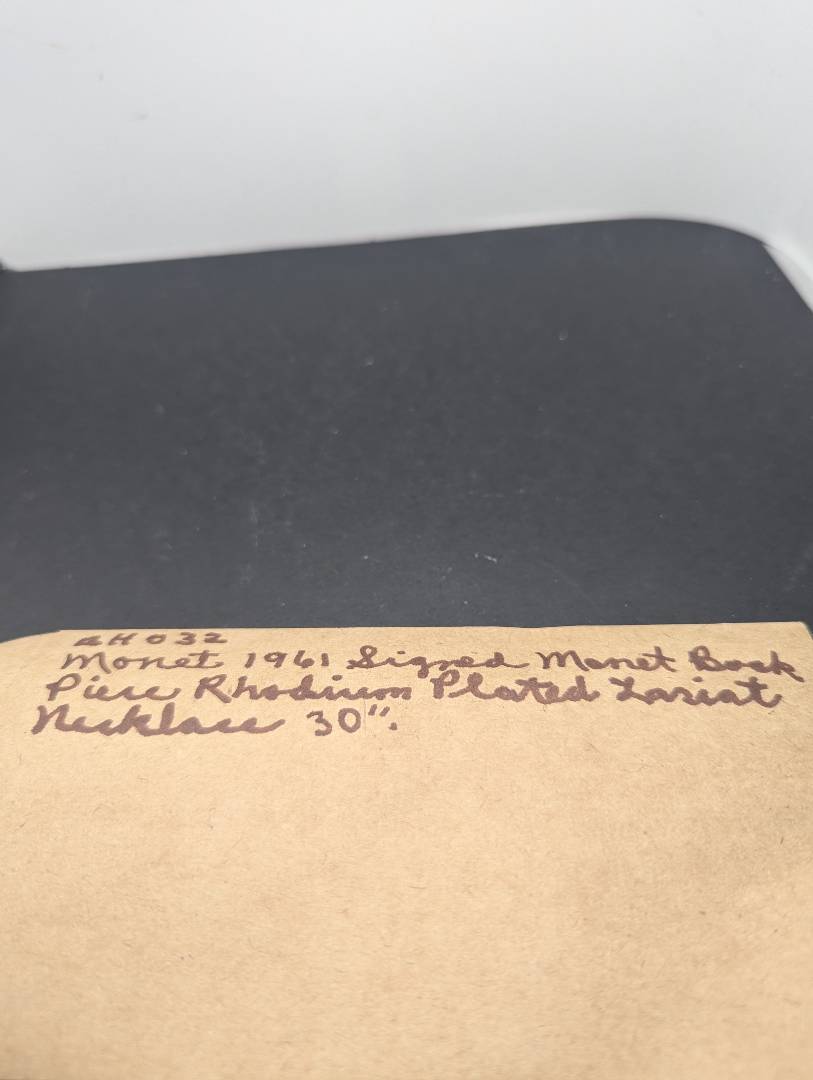 BH032
Monet 1961 Signed Monet Book
Piece Rhodium Plated Lariat
Necklace 30".